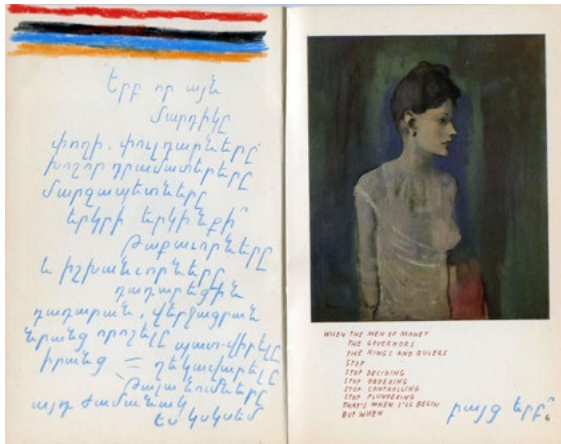 երբ որ այն
մարդիկը
փողի. փուլ դարները
խոշոր դրամատերերը
մարզպետները
երկրի երկինքի՞
թաքաւորները
և իշխանւորները
դադարեցին
դադարան, վերջացրան
նրանց որոշելը պատւիրելը
իրանց = ղեկավարելը
թալանումները
այդ ժամանակ
ես կսկսեմ
WHEN THE MEN OF MONEY
THE GOVERNORS
THE KINGS AND RULERS
STOP
STOP DECIDING
STOP ORDERING
STOP CONTROLLING
STOP PLUNDERING
THAT'S WHEN I'LL BEGIN
BUT WHEN
բայց երբ՞
6